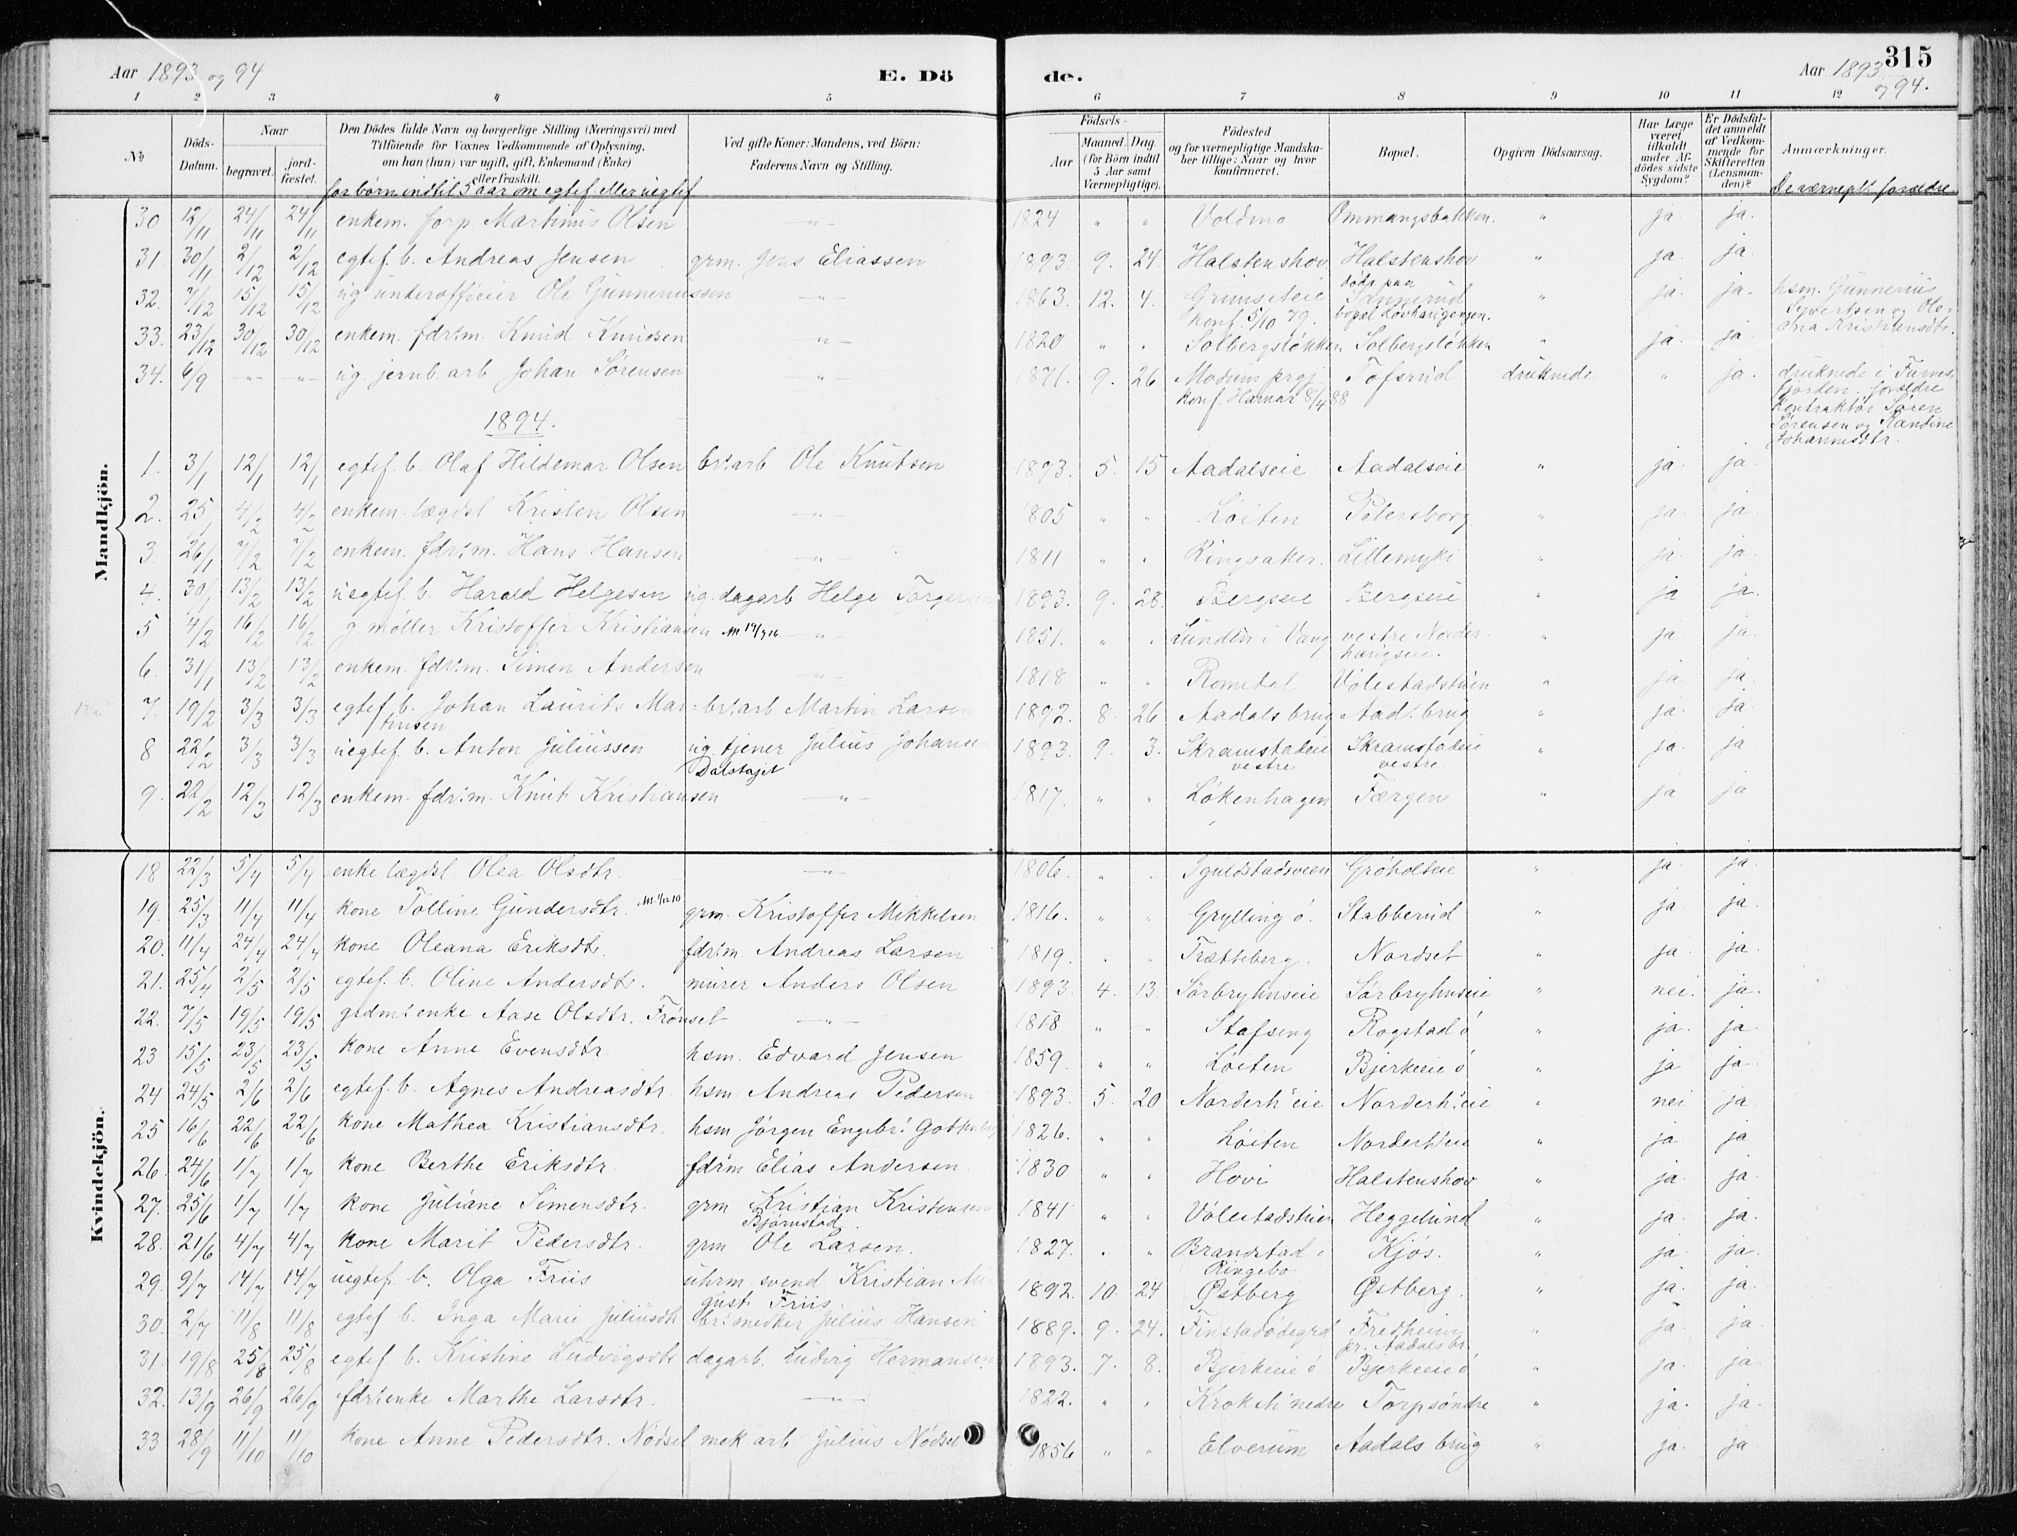 Aar 1893 og 94 E. Dö de. Aar 1893 og 94. 315
1 2 3 4 5 6 7 8 9 10 11 12
No
Döds-Datum.
Naar
begravet.
jord-fæstet.
Den Dödes fulde Navn og borgerlige Stilling (Næringsvei) med
Tilföiende for Voxnes Vedkommende af Oplysning,
om han (hun) var ugift, gift, Enkemand (Enke)
eller fraskilt.
for børn indtil 5 aar om egtef. eller uegtef.
Ved gifte Koner: Mandens, ved Börn:
Faderens Navn og Stilling.
Födsels-
Aar
Maaned. Dag.
(for Börn indtil
5 Aar samt
Værnepligtige).
Födested
og for værnepligtige Mandska-
ber tillige: Naar og hvor
konfirmeret.
Bopæl.
Opgiven Dödsaarsag.
Har Læge
været
tilkaldt
under Af-
dödes sidste
Sygdom?
Er Dödsfal-
det anmeldt
af Vedkom-
mende for
Skifteretten
(Lensman-
den)?
Anmærkninger.
De værnepl. forældre.
Mandkjön.
30 12/11 24/11 24/11 enkem. forp. Martinus Olsen -"- 1824 " " Voldmo Ommangsbakken. " ja. ja.
31 30/11 2/12 2/12 egtef. b. Andreas Jensen grm. Jens Eliassen 1893. 9. 24. Halstenshov Halstenshov " ja. ja.
32. 7/12 15/12 15/12 ug. underofficier Ole Gunneriussen -"- 1863. 12. 4. Grimseteie konf. 5/10 79. døde paa Sannerud bopel Løvhaugengen. " ja. ja. hsm. Gunnerius Syvertsen og Kristiansdtr.
33. 23/12 30/12 30/12 enkem. fdr.m. Knud Knudsen -"- 1820 " " Solbergsløkken Solbergsløkken " ja. ja.
34. 6/9 -"- -"- ug. jernb.arb Johan Sørensen -"- 1871. 9. 26 Modum prgj. konf. Hamar 8/4 88 Tofsrud druknede " ja. druknede i Furnesfjorden, forældre Kontraktør Søren Sørensen og Randine Johannesdtr.
1894.
1. 3/1 12/1 12/1 egtef. b. Olaf Hildemar Olsen br.arb Ole Knutsen 1893. 5. 15 Aadalseie Aadalseie " ja. ja.
2. 25/1 4/2 4/2 enkem. lægdsl Kristen Olsen -"- 1805 " " Løiten Petersborg " ja. ja
3 26/1 7/2 7/2 enkem. fdr.m. Hans Hansen -"- 1811 " " Ringsaker. Lillemyki " ja ja.
4. 30/1 13/2 13/2 uegtef. b. Harald Helgesen ug. dagarb Helge Torgersen 1893. 9. 28. Bergseie Bergseie " ja ja.
5 4/2 16/2 16/2 g. møller Kristoffer Kristiansen -"- 1851. " " Lunden i Vang vestre Norderhaugseie. " ja ja.
6. 31/1 13/2 13/2 enkem. fdr.m. Simen Andersen -"- 1818 " " Romedal Volestadstuen " ja ja.
7. 19/2 3/3 3/3 egtef. b. Johan Laurits Martinsen br.arb Martin Larsen 1892. 8. 26 Aadals brug Aad. brug " ja. ja.
8 22/2 3/3 3/3 uegtef. b. Anton Juliussen ug. tjener Julius Johansen Dalstajet 1893. 9. 3. Skramstadeie vestre Skramstadeie vestre. " ja. ja
9. 22/2 12/3 12/3 enkem. fdr.m. Knut Kristiansen -"- 1817. " " Løkenhagen Færgen " ja ja
Kvindekjön.
18 22/3 5/4 5/4 enke lægdsl Olea Olsdtr. -"- 1806. " " Gröholteie " ja. ja.
19. 25/3 11/4 11/4 kone Tolline Gundersdtr. grm. Kristoffer Mikkelsen 1816. " " Grylling ö. Stabberud " ja ja.
20. 11/4 24/4 24/4 kone Oleana Eriksdtr. fdr.m Andreas Larsen 1819. " " Trætteberg. Nordset " ja. ja.
21. 25/4 2/5 2/5 egtef. b. Oline Andersdtr. murer Anders Olsen 1893. 4. 13. Sørbryhuseie Sørbryhuseie " nei. ja.
22. 7/5 19/5 19/5 grdm. enke Aase Olsdtr. Frönset -"- 1818 " " Stafseng Rogstad ö " ja. ja
23 15/5 23/5 23/5 kone Anne Evensdtr. hsm. Edvard Jensen 1859. " " Løiten Bjerkeeie ö " ja ja.
24 24/5 2/6 2/6 egtef. b. Agnes Andreasdtr. hsm. Andreas Pedersen 1893. 5. 20 Norderh. eie Norderh. eie " nei ja
25 16/6 22/6 22/6 kone Mathea Kristiansdtr. hsm Jørgen Engebr. 1826. " " Løiten Norderh.eie " ja ja.
26. 24/6 1/7 1/7 kone Berthe Eriksdtr. fdr.m Elias Andersen. 1830 " " Hovi Halstenshov " ja. ja.
27. 25/6 1/7 1/7 kone Juliane Simensdtr. grm Kristian Kristensen Bjørnstad. 1841 " " Volestadstuen Heggelund " ja. ja.
28. 21/6 4/7 4/7 kone Marit Pedersdtr. grm Ole Larsen. 1827. " " Brandstad i Ringebo Kjös. " ja. ja.
29. 9/7 14/7 14/7 uegtef. b. Olga Friis uhrm. svend Kristian August Friis 1892. 10. 24 Østberg Østberg. " ja. ja.
30. 2/7 11/8 11/8 egtef b. Inga Marie Juliusdtr br. snedker Julius Hansen 1889. 9. 24. Finstadødegrd Fredheim pr. Aadals br. " ja. ja.
31. 19/8 25/8 25/8 egtef b. Kristine Ludvigsdtr dagarb. Ludvig Hermansen 1893. 7. 8. Bjerkeeie ö Bjerkeeie ö " ja. ja
32. 13/9 26/9 26/9 fdr. enke Marthe Larsdtr. -"- 1822. " " Kroksti nedre Torp søndre " ja. ja.
33 28/9 11/10 11/10 kone Anne Pedersdtr. Nødset mek. arb Julius Nødset 1856 " " Elverum Aadals brug " ja. ja